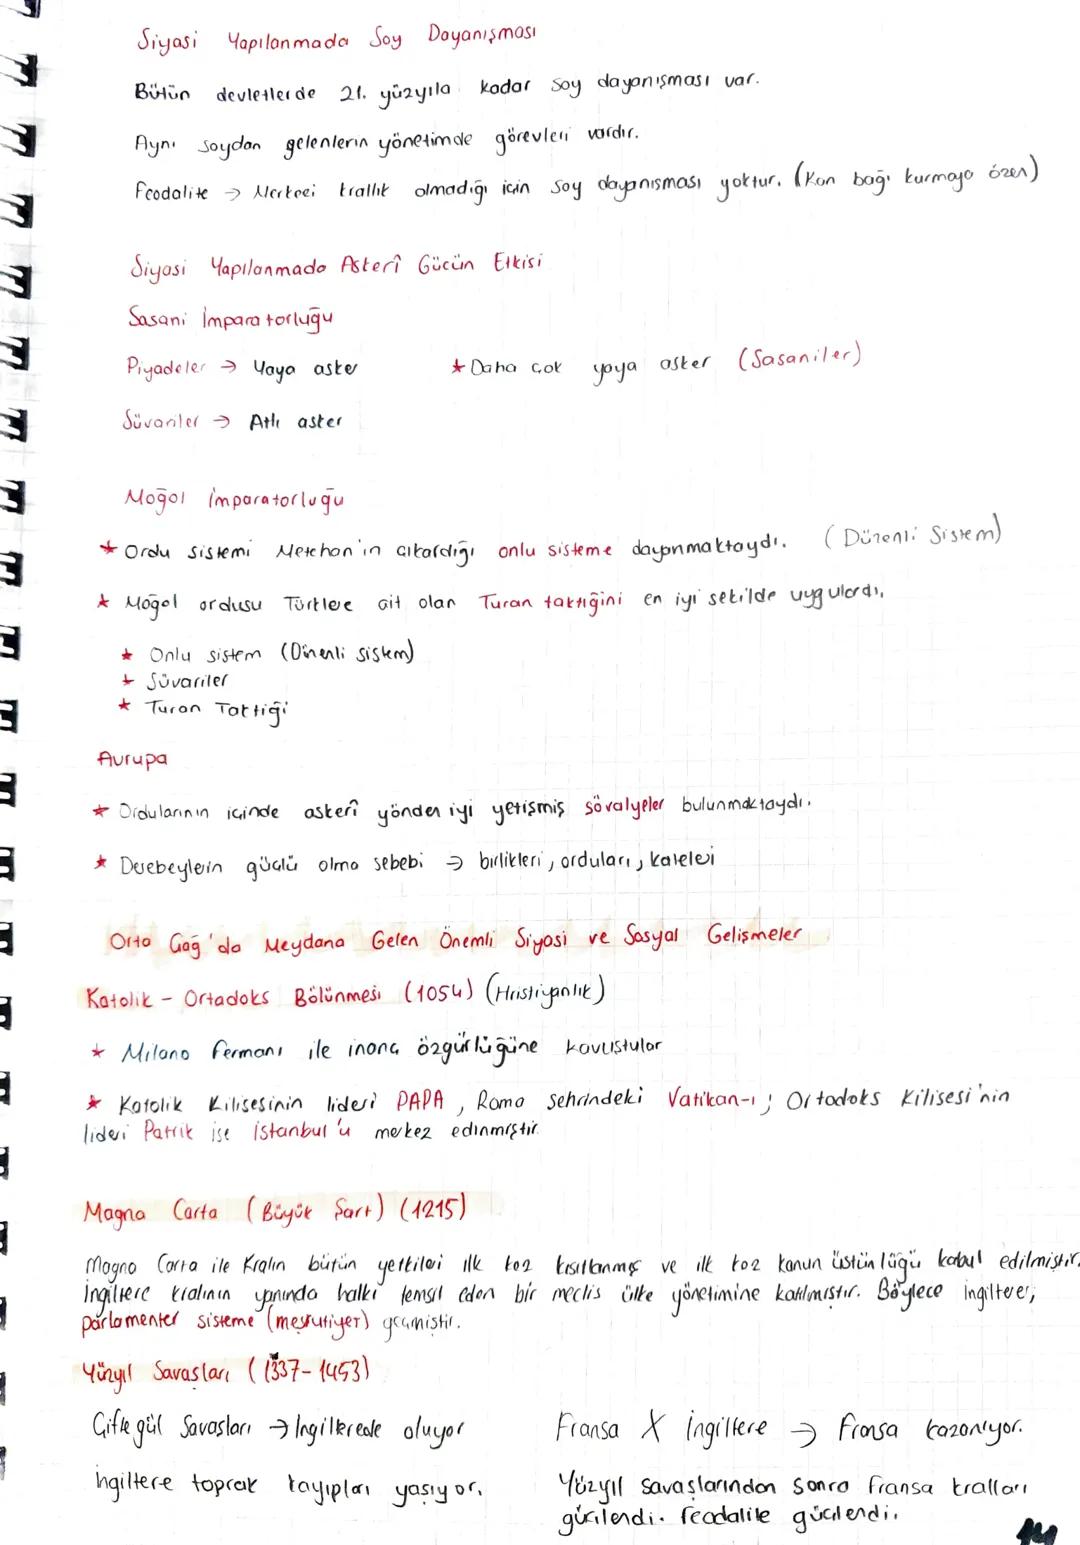 Siyasi Yapılanmada Soy Dayanışması
Bütün devletlerde 21. yüzyıla kadar soy dayanışması var.
Aynı soydan gelenlerin yönetimde görevleri vardır.
Feodalite → Merkezi krallık olmadığı için soy dayanışması yoktur. (Kan bağı kurmaya özen)
Siyasi Yapılanmada Askerî Gücün Etkisi
Sasani İmparatorluğu
Piyadeler → Yaya asker ★ Daha çok yaya asker (Sasaniler)
Süvariler → Atlı asker
Moğol İmparatorluğu
★ Ordu sistemi Metehan'ın çıkardığı onlu sisteme dayanmaktaydı. (Düzenli Sistem)
★ Moğol ordusu Türklere ait olan Turan taktiğini en iyi şekilde uygulardı.
★ Onlu sistem (Düzenli sistem)
★ Süvariler
★ Turan Taktiği
Avrupa
★ Ordularının içinde askerî yönden iyi yetişmiş şövalyeler bulunmaktaydı.
★ Derebeylerin güçlü olma sebebi → birlikleri, orduları, kaleleri
Orta Çağ'da Meydana Gelen Önemli Siyasi ve Sosyal Gelişmeler
Katolik - Ortadoks Bölünmesi (1054) (Hristiyanlık)
★ Milano Fermanı ile inanç özgürlüğüne kavuştular
★ Katolik Kilisesinin lideri PAPA, Roma şehrindeki Vatikan-ı; Ortadoks Kilisesi'nin
lideri Patrik ise İstanbul'u merkez edinmiştir.
Magna Carta (Büyük Şart) (1215)
Magna Carta ile Kralın bütün yetkileri ilk kez kısıtlanmış ve ilk kez kanun üstünlüğü kabul edilmiştir.
İngiltere kralının yanında halkı temsil eden bir meclis ülke yönetimine katılmıştır. Böylece İngiltere;
parlamenter sisteme (meşrutiyet) geçmiştir.
Yüzyıl Savaşları (1337-1453)
Çifte gül Savaşları → İngilterede oluyor
İngiltere toprak kayıpları yaşıyor.
Fransa X İngiltere → Fransa kazanıyor.
Yüzyıl savaşlarından sonra Fransa kralları
güçlendi. Feodalite güçlendi.
14